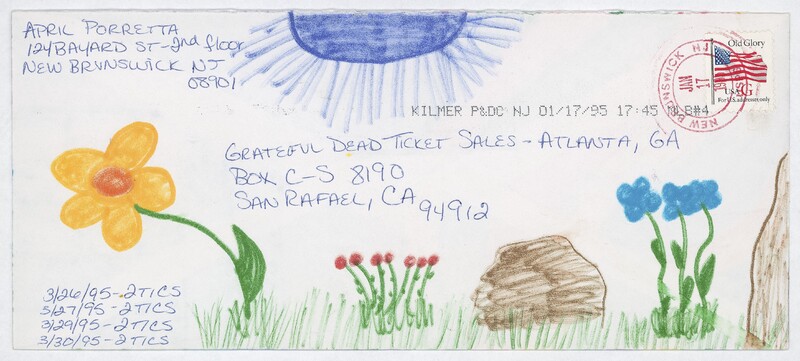 APRIL PORRETTA
124 BAYARD ST - 2nd floor
NEW BRUNSWICK NJ
08901
Old Glory
USA G
For U.S. addresses only
NEW BRUNSWICK NJ
JAN
17
KILMER P&DC NJ 01/17/95 17:45 MLB#4
GRATEFUL DEAD TICKET SALES - ATLANTA, GA
BOX C-S 8190
SAN RAFAEL, CA
94912
3/26/95 - 2 TICS
3/27/95 - 2 TICS
3/29/95 - 2 TICS
3/30/95 - 2 TICS